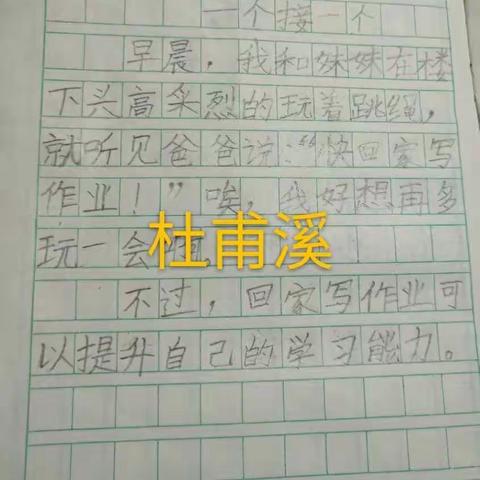 一个接一个
早晨，我和妹妹在楼
下兴高采烈的玩着跳绳，
就听见爸爸说：“快回家写
作业！”唉，我好想再多
玩一会
杜甫溪
不过，回家写作业可
以提升自己的学习能力。